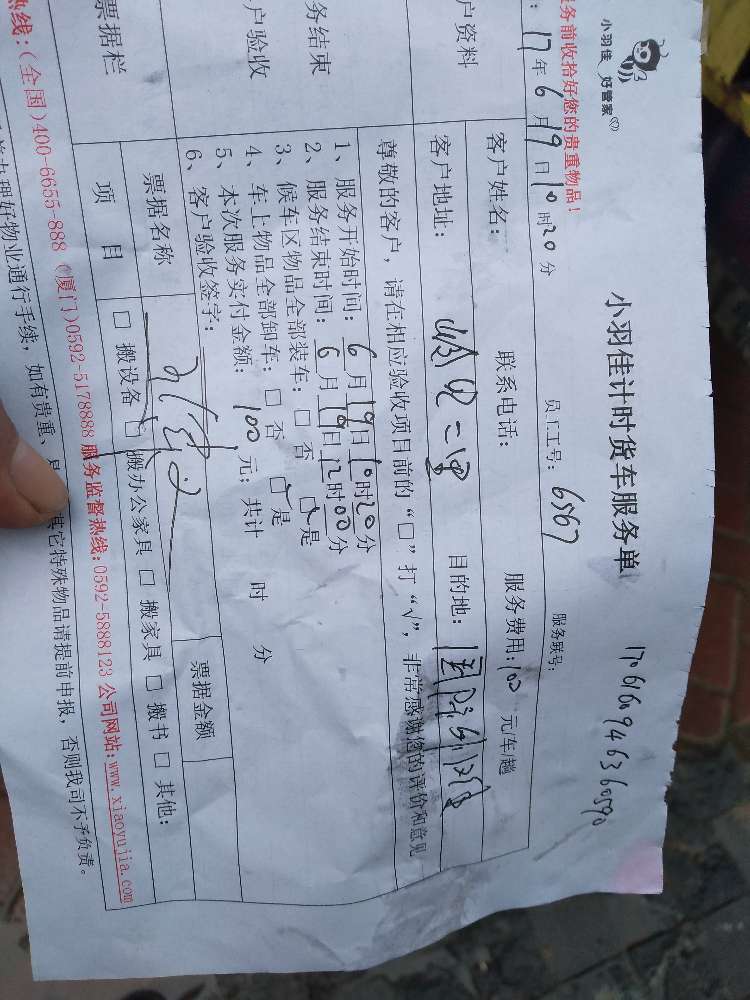 小羽佳 好管家
小羽佳计时货车服务单
务前收拾好您的贵重物品!
17年6月19日10时20分 员工工号: 6567 服务账号:
户资料
客户姓名: 联系电话: 服务费用:100元/车/趟
客户地址: 目的地:
务结束
户验收
尊敬的客户,请在相应验收项目前的“□”打“√”,非常感谢您的评价和意见
1、服务开始时间: 6月19日10时20分
2、服务结束时间: 6月19日12时00分
3、候车区物品全部装车: □否 □是
4、车上物品全部卸车: □否 □是
5、本次服务实付金额: 100元; 共计 时 分
6、客户验收签字:
票据栏
票据名称 票据金额
项目 □搬设备 □搬办公家具 □搬家具 □搬书 □其他:
热线:(全国)400-6655-888 (厦门)0592-5178888 服务监督热线:0592-5888123 公司网站:www.xiaoyujia.com
办理好物业通行手续,如有贵重、 其它特殊物品请提前申报,否则我司不予负责。